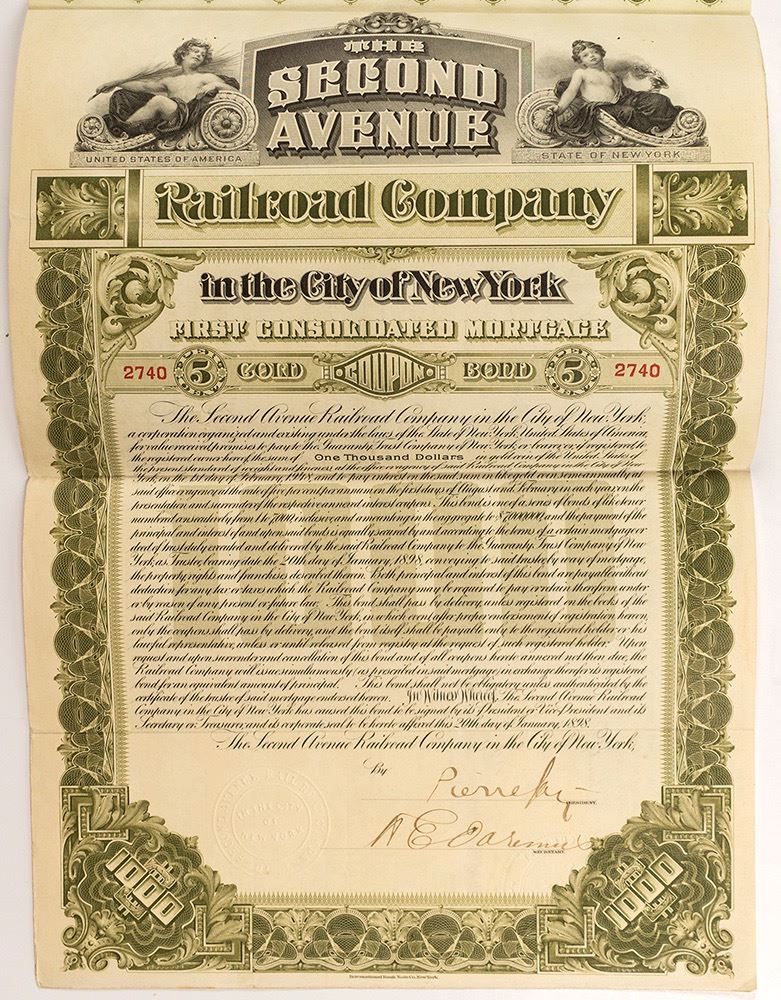 THE
SECOND
AVENUE
UNITED STATES OF AMERICA
STATE OF NEW YORK
Railroad Company
in the City of New York
FIRST CONSOLIDATED MORTGAGE
2740 5 GOLD COUPON BOND 5 2740
The Second Avenue Railroad Company in the City of New York,
a corporation organized and existing under the laws of the State of New York, United States of America
for value received promises to pay to the Guaranty Trust Company of New York, or bearer, or if registered to
the registered owner the sum of One Thousand Dollars in gold coin of the United States of
the present standard of weight and fineness at the office or agency of said Railroad Company in the City of New
York, on the 1st day of February, 1948, and to pay interest on the said sum in like gold coin semi-annually at
said office or agency at the rate of five per cent per annum on the first days of August and February in each year on the
presentation and surrender of the respective annexed interest coupons. This bond is one of a series of bonds of like tenor
numbered consecutively from 1 to 7000, inclusive, and amounting in the aggregate to $7,000,000, and the payment of the
principal and interest of and upon said bonds is equally secured by and according to the terms of a certain mortgage or
deed of trust duly executed and delivered by the said Railroad Company to the Guaranty Trust Company of New
York, as Trustee, bearing date the 20th day of January, 1898, conveying to said trustee by way of mortgage,
the property, rights and franchises described therein. Both principal and interest of this bond are payable without
deduction for any tax or taxes which the Railroad Company may be required to pay or deduct therefrom, under
or by reason of any present or future law. This bond shall pass by delivery, unless registered in the books of the
said Railroad Company in the City of New York, in which event, after proper endorsement of registration hereon,
only the coupons shall pass by delivery, and the bond itself shall be payable only to the registered holder or his
lawful representative, unless or until released from registry at the request of such registered holder. Upon
request and upon surrender and cancellation of this bond and of all coupons hereto annexed not then due, the
Railroad Company will issue simultaneously (as provided in said mortgage) in exchange therefor its registered
bond for an equivalent amount of principal. This bond shall not be obligatory unless authenticated by the
certificate of the trustee of said mortgage endorsed hereon. In Witness Whereof, The Second Avenue Railroad
Company in the City of New York has caused this bond to be signed by its President or Vice President and its
Secretary or Treasurer, and its corporate seal to be hereto affixed this 20th day of January, 1898.
The Second Avenue Railroad Company in the City of New York,
By
PRESIDENT.
SECRETARY.
1000
1000
International Bank Note Co. New York.